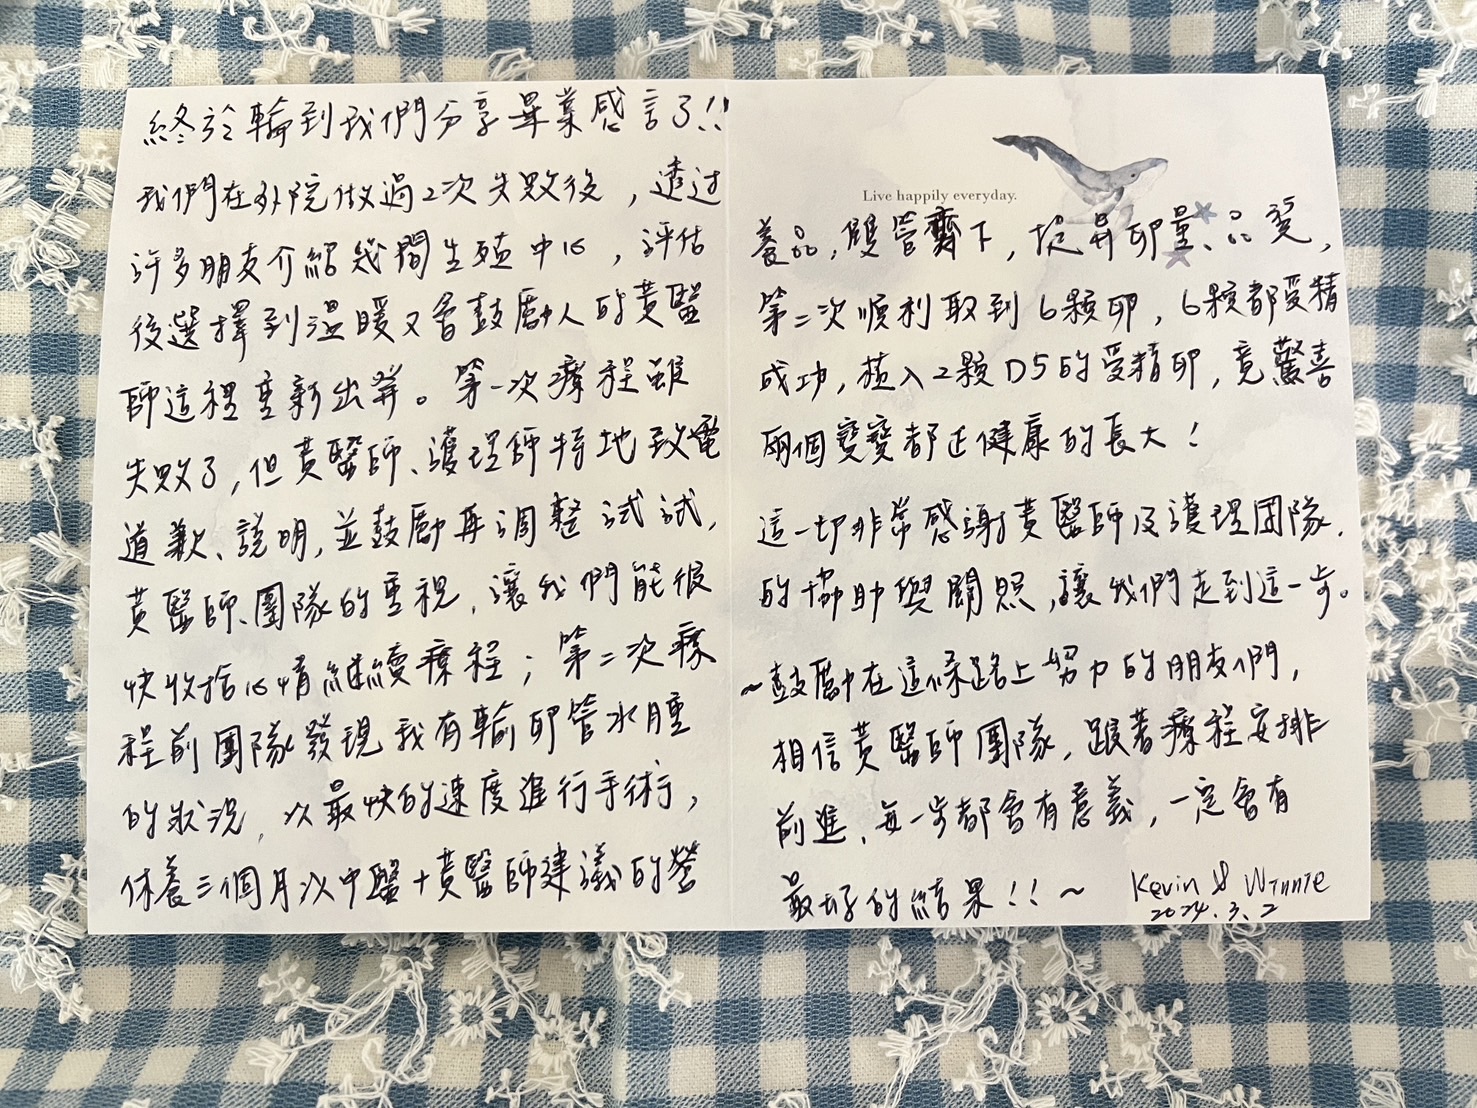 終於輪到我們分享畢業感言了!!
我們在外院做過2次失敗後，透過
許多朋友介紹幾間生殖中心，評估
後選擇到溫暖又會鼓勵人的黃醫
師這裡重新出發。第一次療程雖
失敗了，但黃醫師、護理師特地致電
道歉、說明，並鼓勵再調整試試，
黃醫師、團隊的重視，讓我們能很
快收拾心情繼續療程；第二次療
程前團隊發現我有輸卵管水腫
的狀況，以最快的速度進行手術，
休養三個月以中醫+黃醫師建議的營
Live happily everyday.
養品，雙管齊下，提昇卵量、品質，
第二次順利取到6顆卵，6顆都受精
成功，植入2顆D5的受精卵，竟驚喜
兩個寶寶都正健康的長大！
這一切非常感謝黃醫師及護理團隊，
的協助與關照，讓我們走到這一步。
~鼓勵在這條路上努力的朋友們，
相信黃醫師團隊，跟著療程安排
前進，每一步都會有意義，一定會有
最好的結果!!~
Kevin & Winnie
2024.3.2